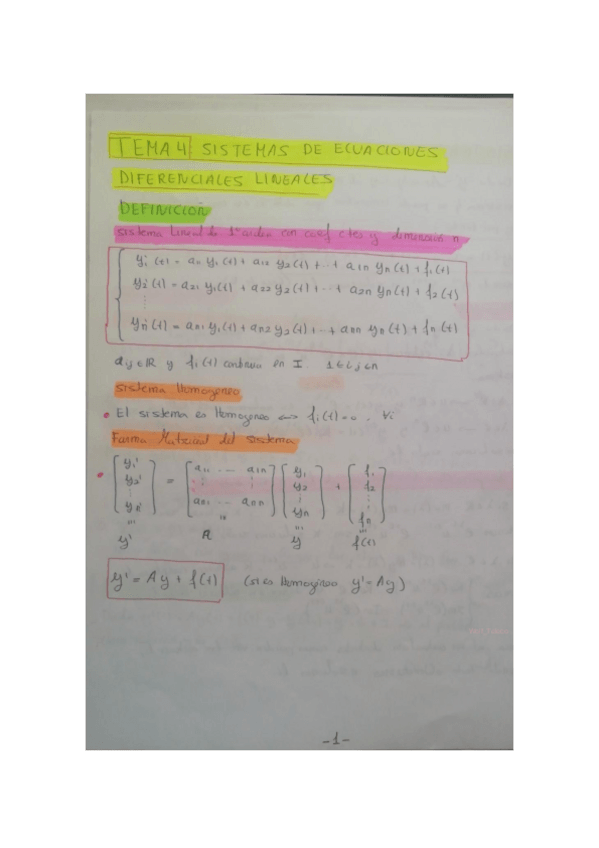 TEMA 4: SISTEMAS DE ECUACIONES
DIFERENCIALES LINEALES
DEFINICION
sistema Lineal de 1er orden con coef ctes y dimension n
y1'(t) = a11 y1(t) + a12 y2(t) + ··· + a1n yn(t) + f1(t)
y2'(t) = a21 y1(t) + a22 y2(t) + ··· + a2n yn(t) + f2(t)
⋮
yn'(t) = an1 y1(t) + an2 y2(t) + ··· + ann yn(t) + fn(t)
aij ∈ R y fi(t) continua en I. 1≤i,j≤n
sistema Homogeneo
• El sistema es Homogeneo ⇔ fi(t)=0, ∀i
Forma Matricial del sistema
• [y1' y2' ⋮ yn'] = [a11 ··· a1n ⋮ ⋮ an1 ··· ann] [y1 y2 ⋮ yn] + [f1 f2 ⋮ fn]
y' A y f(t)
y' = Ay + f(t) (si es Homogéneo y' = Ay)
-1-